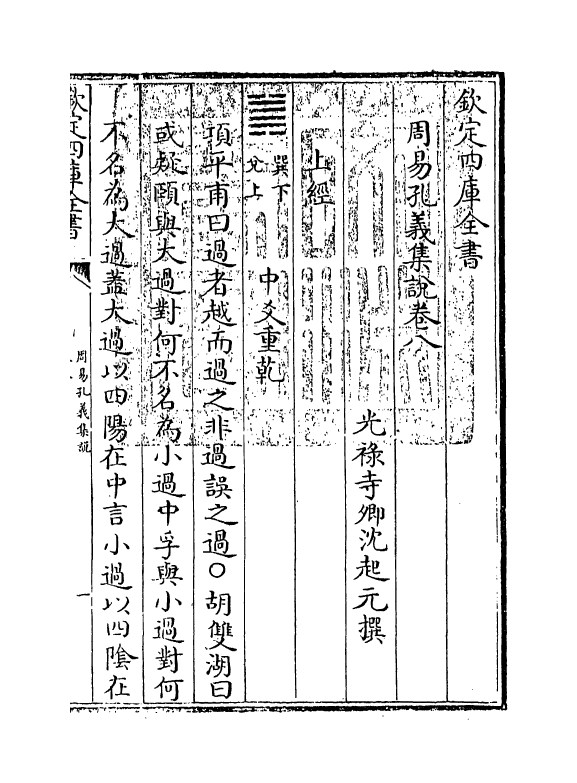 欽定四庫全書
周易孔義集說卷八
光祿寺卿沈起元撰
上經
䷛ 巽下
兌上
中爻重乾
項平甫曰過者越而過之非過誤之過○胡雙湖曰
或疑頤與大過對何不名為小過中孚與小過對何
不名為大過蓋大過以四陽在中言小過以四陰在
欽定四庫全書
周易孔義集說
一